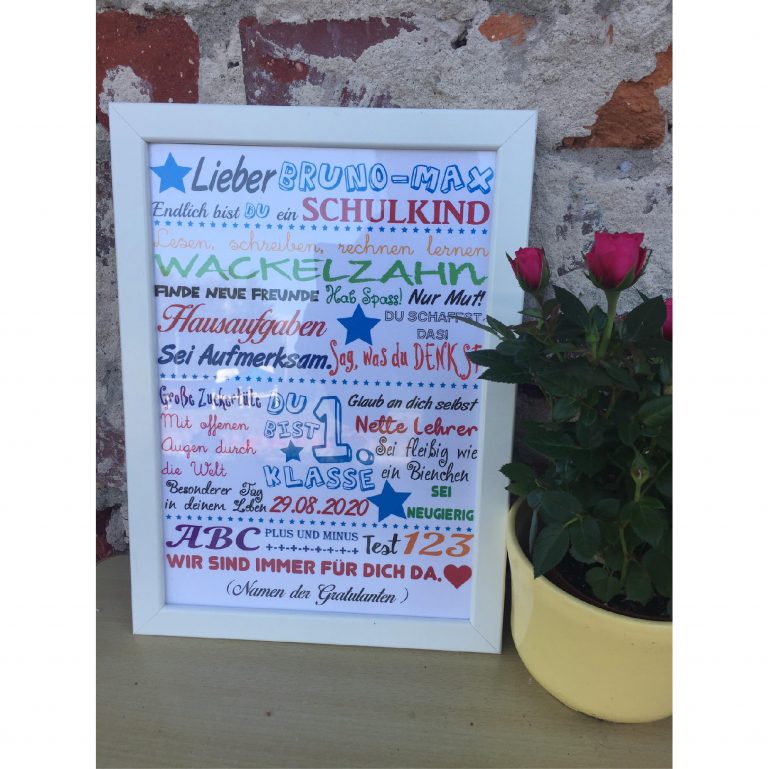 Lieber BRUNO-MAX
Endlich bist DU ein SCHULKIND
Lesen, schreiben, rechnen lernen
WACKELZAHN
FINDE NEUE FREUNDE Hab Spass! Nur Mut!
Hausaufgaben
DU SCHAFFST
DAS!
Sei Aufmerksam. Sag, was du DENKST
Große Zuckertüte
Mit offenen
Augen durch
die Welt
Besonderer Tag
in deinem Leben 29.08.2020
DU
BIST 1.
KLASSE
Glaub an dich selbst
Nette Lehrer
Sei fleißig wie
ein Bienchen
SEI
NEUGIERIG
ABC PLUS UND MINUS Test 123
-+-+-+-+-+-+-+-+-
WIR SIND IMMER FÜR DICH DA.
(Namen der Gratulanten)